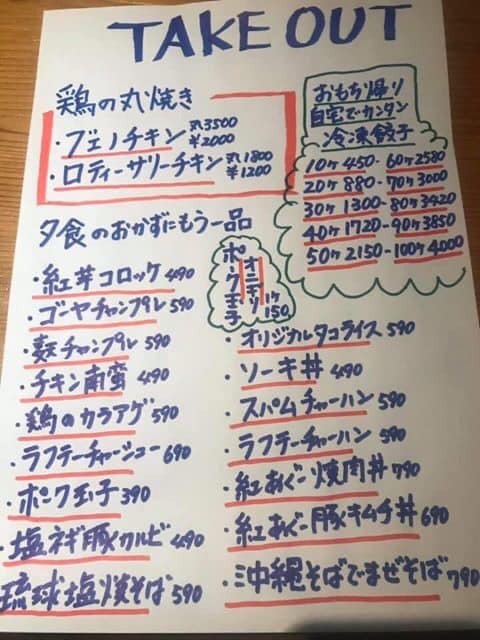 TAKE OUT
鶏の丸焼き
・ブエノチキン 丸3500
¥2000
・ロティーサリーチキン 丸1800
¥1200
おもち帰り
自宅でカンタン
冷凍餃子
10ヶ450-60ヶ2580
20ヶ880-70ヶ3000
30ヶ1300-80ヶ3420
40ヶ1720-90ヶ3850
50ヶ2150-100ヶ4000
夕食のおかずにもう一品
・紅芋コロッケ 490
・ゴーヤチャンプル 590
・麩チャンプル 590
・チキン南蛮 490
・鶏のカラアゲ 590
・ラフテーチャーシュー 690
・ポーク玉子 390
・塩ネギ豚カルビ 490
琉球塩焼そば 590
ポーク玉子
オニギリ
1ヶ
150
・オリジナルタコライス 590
・ソーキ丼 490
・スパムチャーハン 590
・ラフテーチャーハン 590
・紅あぐー焼肉丼 790
・紅あぐー豚キムチ丼 690
・沖縄そばでまぜそば 790